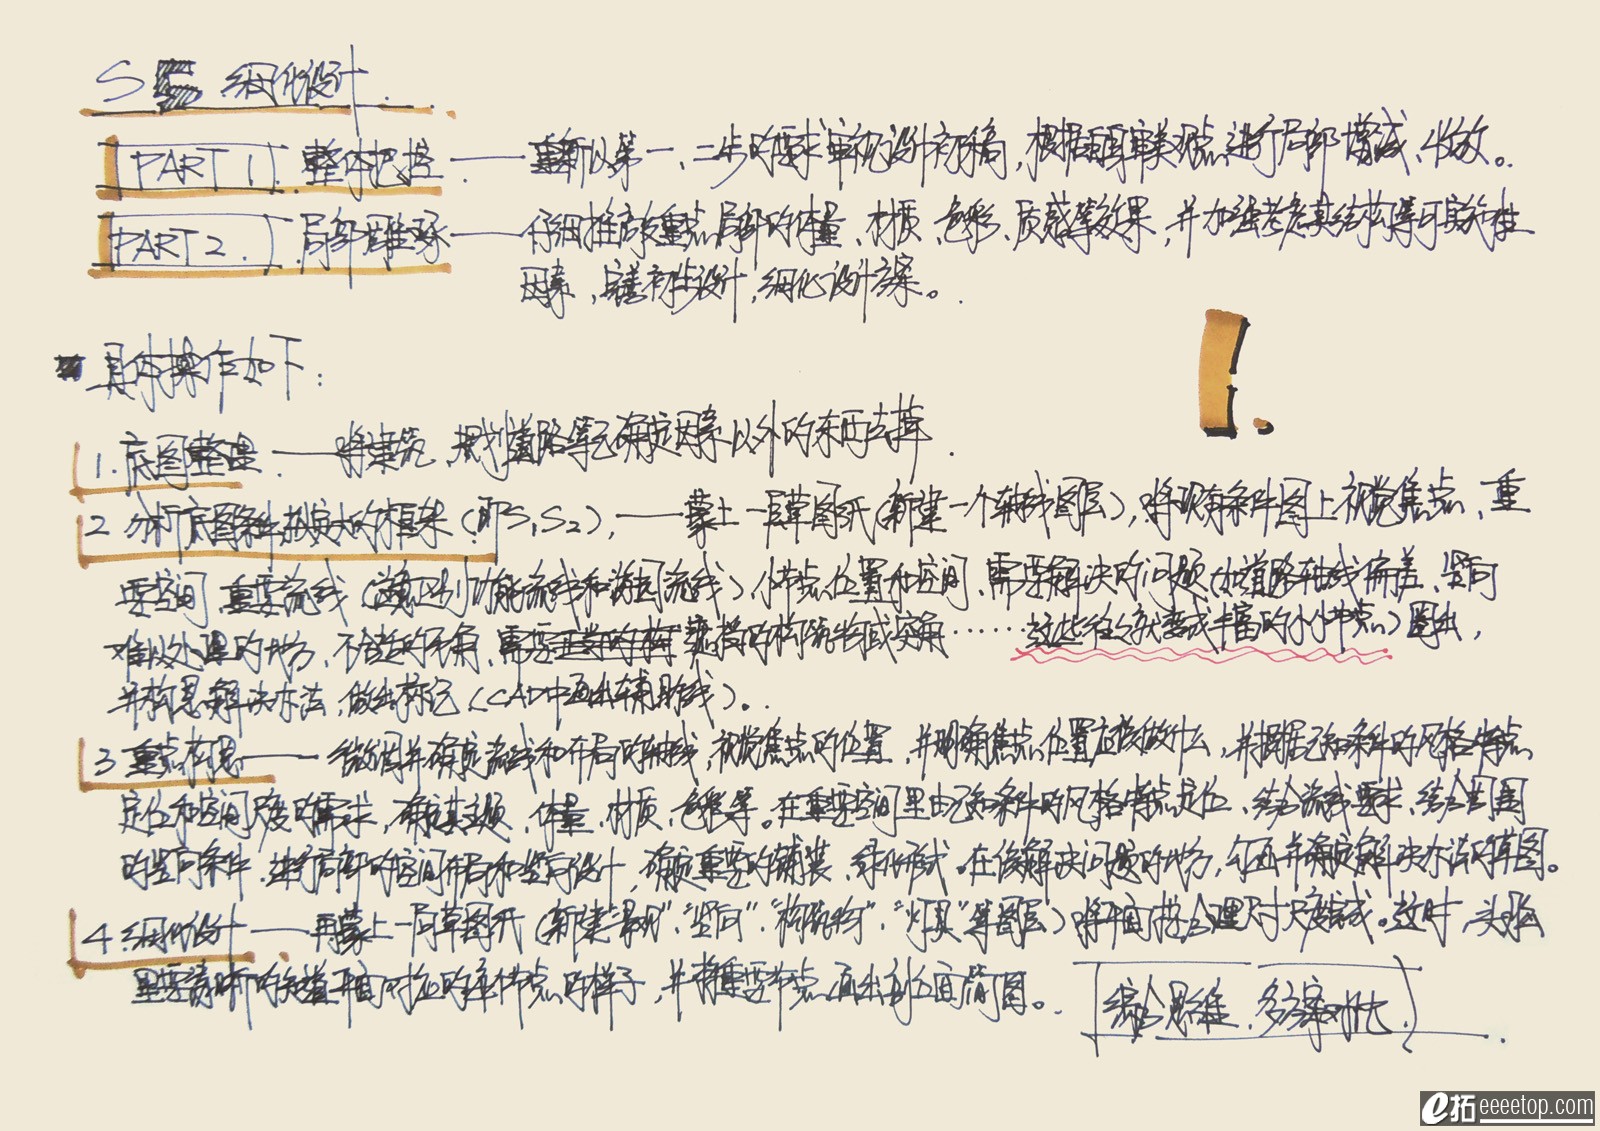 S 细化设计
PART 1 整体把控 —— 重新以第一、二步的要求审视设计初稿,根据审美观点进行局部增减、收放。
PART 2. 局部雕琢 —— 仔细推敲重点局部的体量、材质、色彩、质感等效果,并加强考虑其结构等可实施性
因素,完善初步设计,细化设计方案。
具体操作如下:
1. 底图整理 —— 将建筑、规划道路等已确定因素以外的东西去掉.
2 分析底图条件 扩大的框架(即S1S2), —— 蒙上一层草图纸(新建一个轴线图层),将现有条件图上视觉焦点、重
要空间、重要流线(注意区别功能流线和游园流线)小节点位置和空间、需要解决的问题(如道路轴线偏差、竖向
难以处理的地方、不舒适的死角、需要遮挡的构筑物或变角……这些往往就变成丰富的小小节点)圈出,
并构思解决办法,做出标记(CAD中画出辅助线)。
3 重点构思 —— 微调并确定流线和布局的轴线,视觉焦点的位置,并明确焦点位置应该做什么,并根据已知条件的风格特点
定位和空间尺度的需求,确定其主题、体量、材质、色彩等。在重要空间里由已知条件的风格特点定位、结合流线要求、结合周围
的竖向条件,进行局部的空间布局和竖向设计,确定重要的铺装、绿化形式。在该解决问题的地方,勾画并确定解决办法的草图。
4 细化设计 —— 再蒙上一层草图纸(新建"景观"、"竖向"、"构筑物"、"灯具"等图层)将平面按合理尺寸尺度描线。这时,头脑
里要清晰的知道平面对应的单体节点的样子,并将重要节点画出剖立面简图。
综合思维.多方案对比
e拓 eeeetop.com